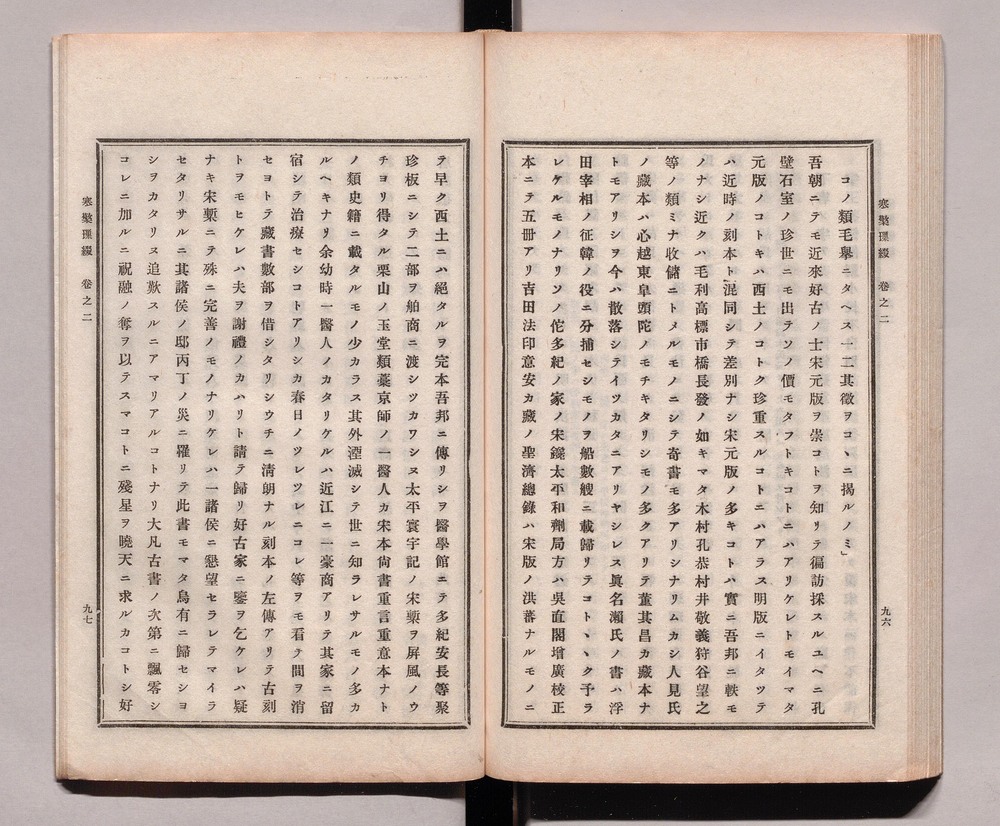 寒檠璅綴　卷之二
九六
コノ類毛擧ニタヘス一二其徵ヲコヽニ揭ルノミ」
吾朝ニテモ近來好古ノ士宋元版ヲ崇コトヲ知リテ徧訪採スルユヘニ孔
壁石室ノ珍世ニモ出テソノ價モタフトキコトニハアリケレトモイマタ
元版ノコトキハ西土ノコトク珍重スルコトニハアラス明版ニイタツテ
ハ近時ノ刻本ト混同シテ差別ナシ宋元版ノ多キコトハ實ニ吾邦ニ軼モ
ノナシ近クハ毛利高標市橋長發ノ如キマタ木村孔恭村井敬義狩谷望之
等ノ類ミナ收儲ニトメルモノニシテ奇書モ多アリシナリムカシ人見氏
ノ藏本ハ心越東皐頭陀ノモチキタリシモノ多クアリテ董其昌カ藏本ナ
トモアリシヲ今ハ散落シテイツカタニアリヤシレス眞名瀨氏ノ書ハ浮
田宰相ノ征韓ノ役ニ分捕セシモノヲ船數艘ニ載歸リテコトヽヽク予ラ
レケルモノナリソノ佗多紀ノ家ノ宋鐫太平和劑局方ハ吳直閣增廣校正
本ニテ五冊アリ吉田法印意安カ藏ノ聖濟總錄ハ宋版ノ洪蕃ナルモノニ
テ早ク西土ニハ絕タルヲ完本吾邦ニ傳リシヲ醫學館ニテ多紀安長等聚
珍板ニシテ二部ヲ舶商ニ渡シツカワシヌ太平寰宇記ノ宋槧ヲ屛風ノウ
チヨリ得タル栗山ノ玉堂類藁京師ノ一醫人カ宋本尙書重言重意本ナト
ノ類史籍ニ載タルモノ少カラス其外湮滅シテ世ニ知ラレサルモノ多カ
ルヘキナリ余幼時一醫人ノカタリケルハ近江ニ一豪商アリテ其家ニ留
宿シテ治療セシコトアリシカ春日ノツレツレニコレ等ヲモ看テ間ヲ消
セヨトテ藏書數部ヲ借シタリシウチニ淸朗ナル刻本ノ左傳アリテ古刻
トヲモヒケレハ夫ヲ謝禮ノカハリト請テ歸リ好古家ニ鑒ヲ乞ケレハ疑
ナキ宋槧ニテ殊ニ完善ノモノナリケレハ一諸侯ニ懇望セラレテマイラ
セタリサルニ其諸侯ノ邸丙丁ノ災ニ罹リテ此書モマタ烏有ニ歸セシヨ
シヲカタリヌ追歎スルニアマリアルコトナリ大凡古書ノ次第ニ飄零シ
コレニ加ルニ祝融ノ奪ヲ以テスマコトニ殘星ヲ曉天ニ求ルカコトシ好
寒檠璅綴　卷之二
九七